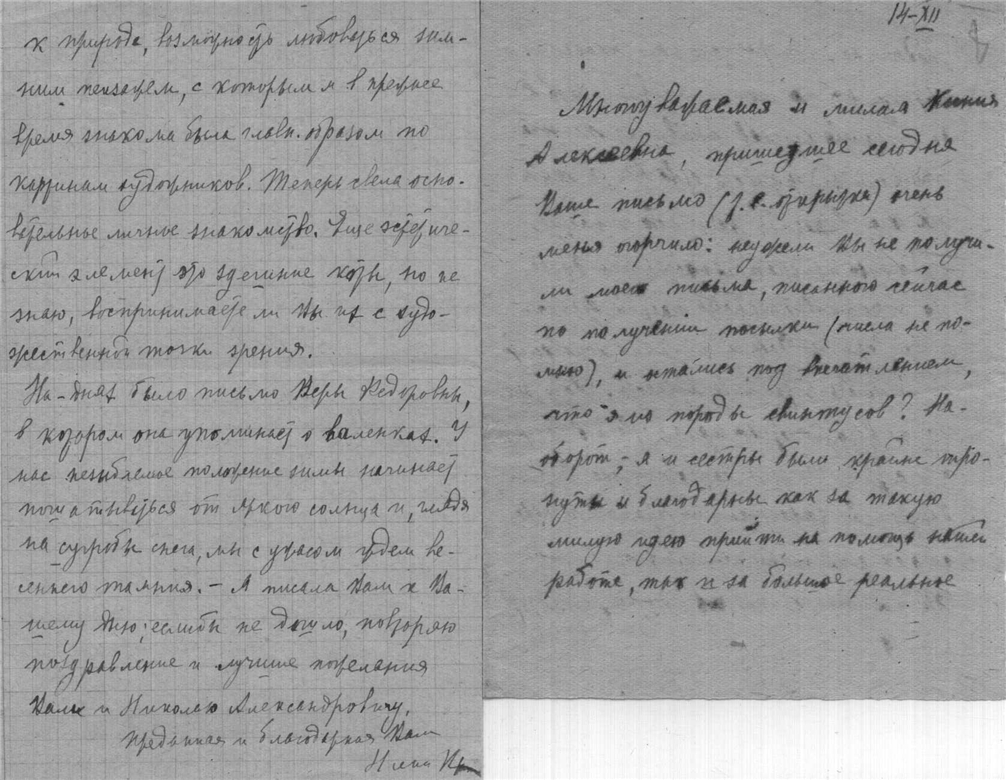 к природе, возможность любоваться зим-
ним пейзажем, с которым я в прежнее
время знакома была главн. образом по
картинам художников. Теперь свела осно-
вательное личное знакомство. Еще эстетиче-
ский элемент это здешние коты, но не
знаю, воспринимаете ли Вы их с худо-
жественной точки зрения.
На-днях было письмо Веры Федоровны,
в котором она упоминает о валенках. У
нас незыблемое положение зимы начинает
пошатываться от яркого солнца и, глядя
на сугробы снега, мы с ужасом ждем ве-
сеннего таяния. – Я писала Вам к Ва-
шему дню; если бы не дошло, повторяю
поздравление и лучшие пожелания
Вам и Николаю Александровичу.
Преданная и благодарная Вам
14-XII
Многоуважаемая и милая
Алексеевна, пришедшее сегодня
Ваше письмо (т.е. открытка) очень
меня огорчило: неужели Вы не получи-
ли моего письма, писанного сейчас
по получении посылки (числа не по-
мню), и остались под впечатлением,
что я из породы свинтусов? На-
оборот, – я и сестры были крайне тро-
нуты и благодарны как за такую
милую идею прийти на помощь нашей
работе, так и за большое реальное